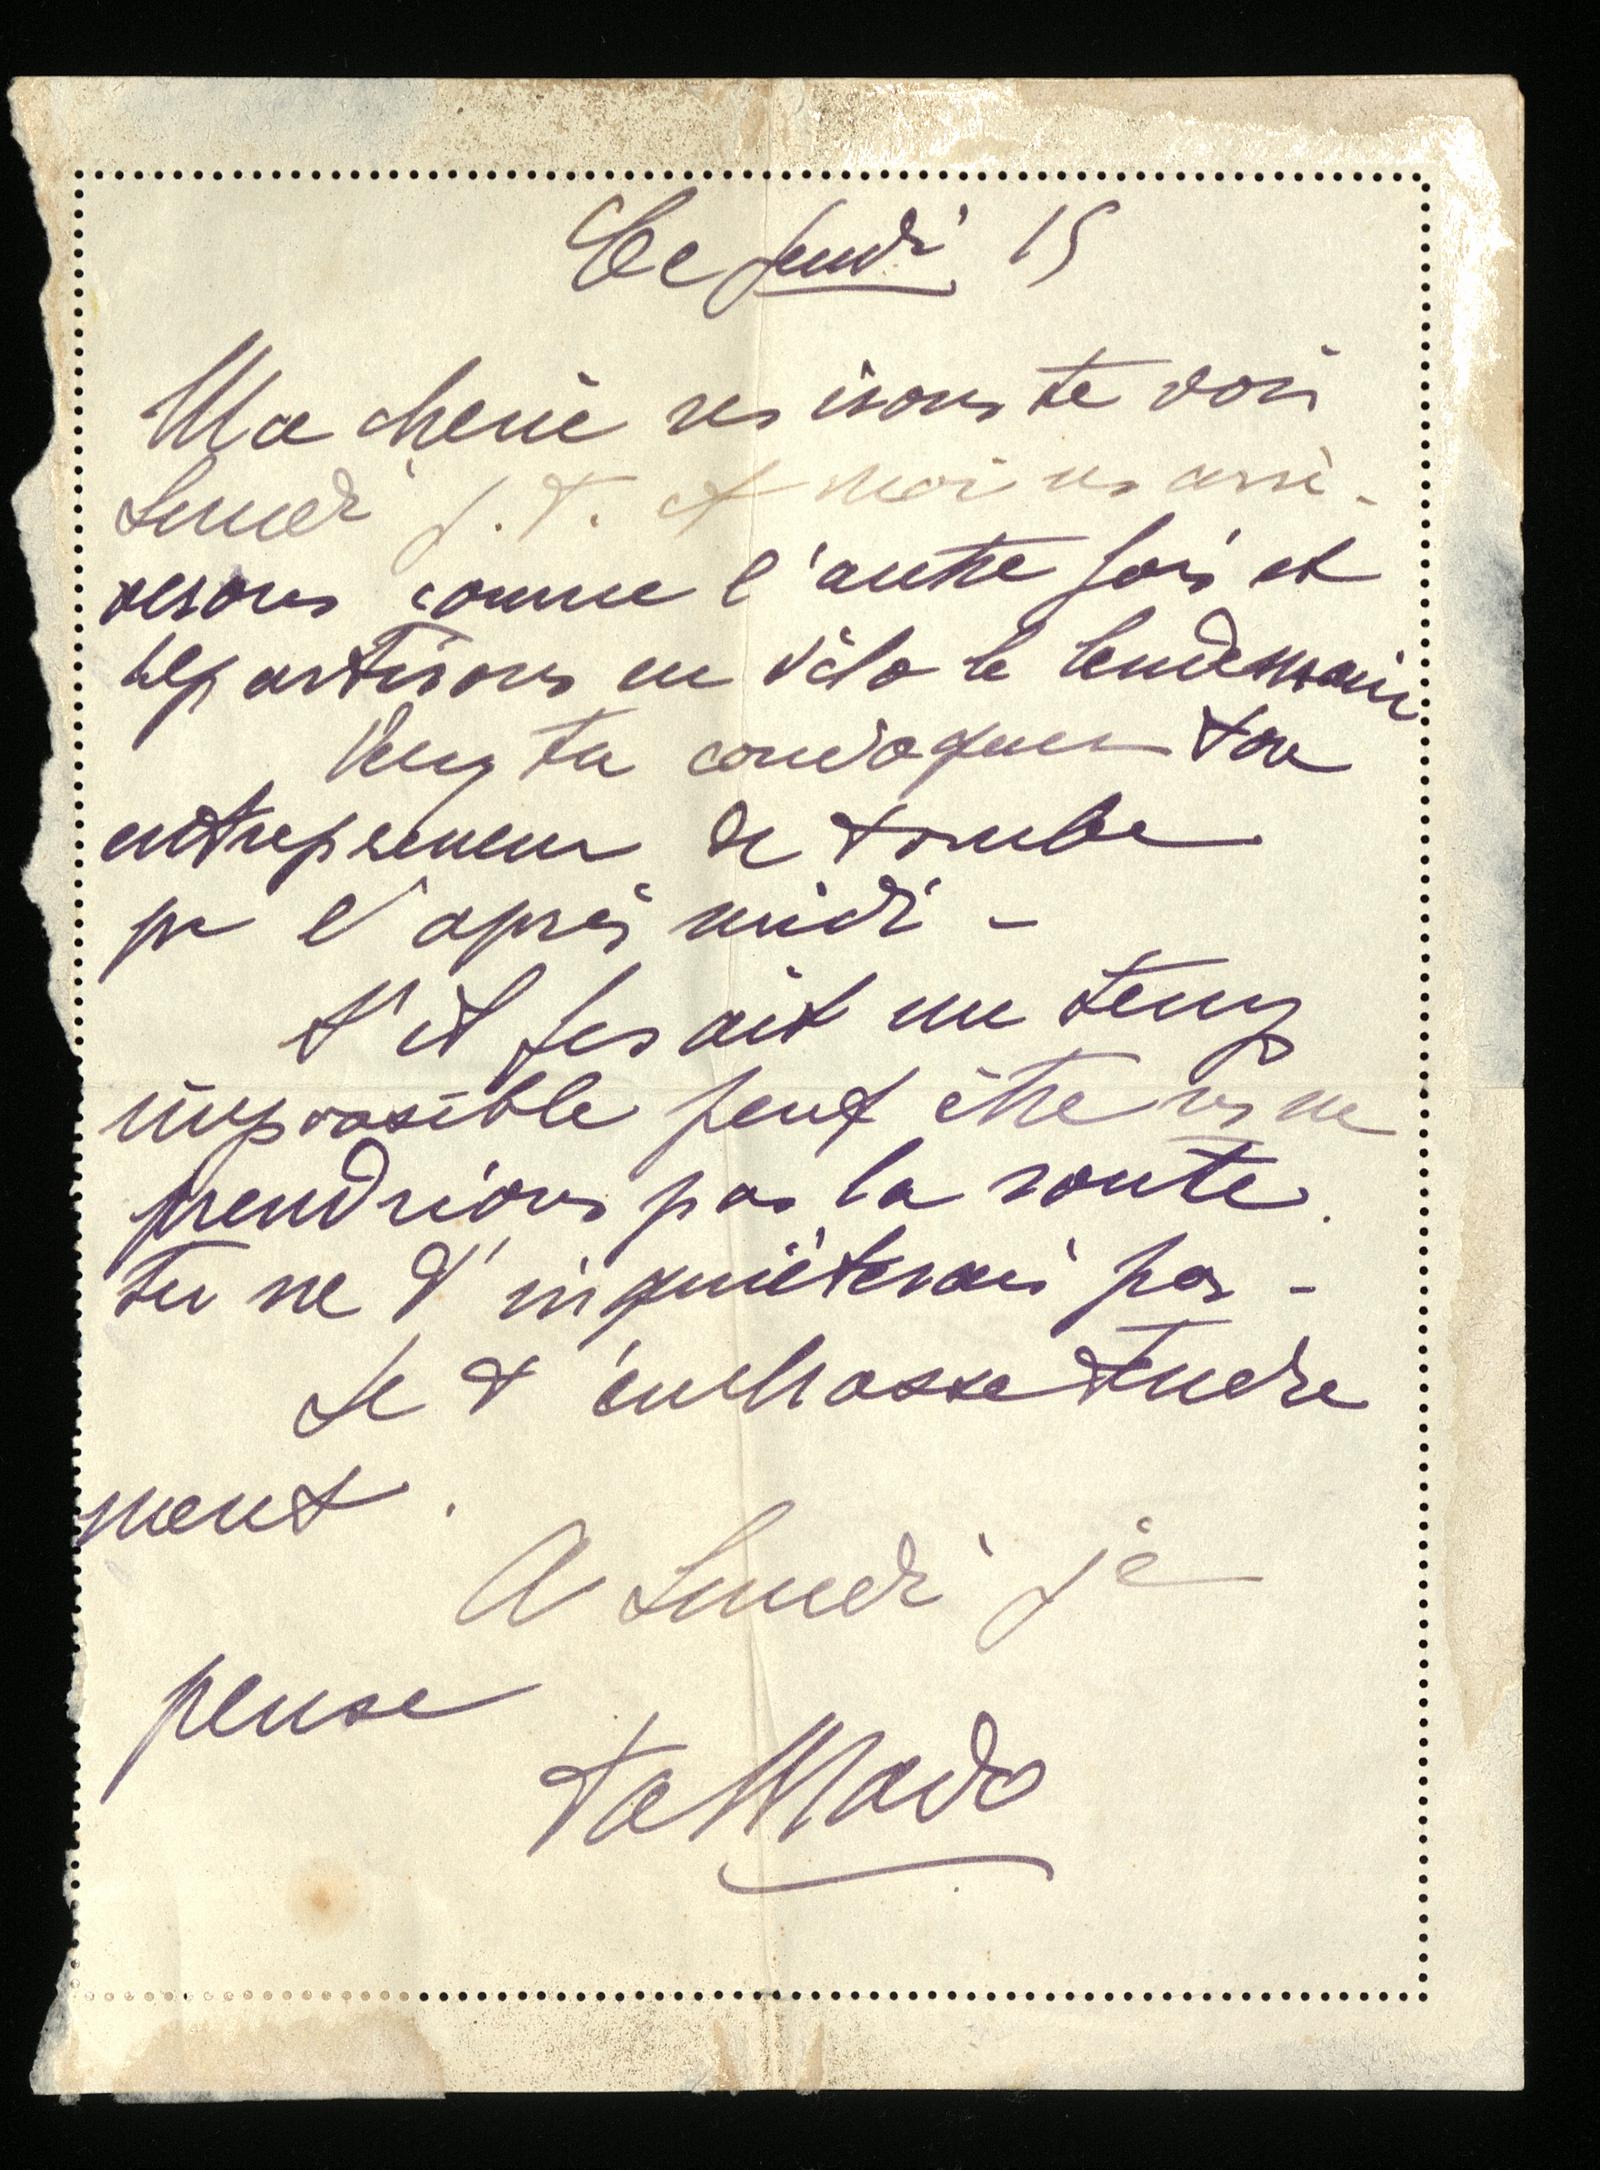 Ce Jeudi 15
Ma cherie ns irons te voir
Lundi J. T. et moi ns arri-
verons comme l'autre fois et
repartirons en vélo le lendemain
Veux tu convoquer ton
entrepreneur de tombe
pr l'après midi -
S'il fesait un temps
impossible peut être ns ne
prendrions pas la route.
Tu ne t'inquièterais pas -
Je t'embrasse tendre
ment.
A Lundi je
pense
Ta Mado